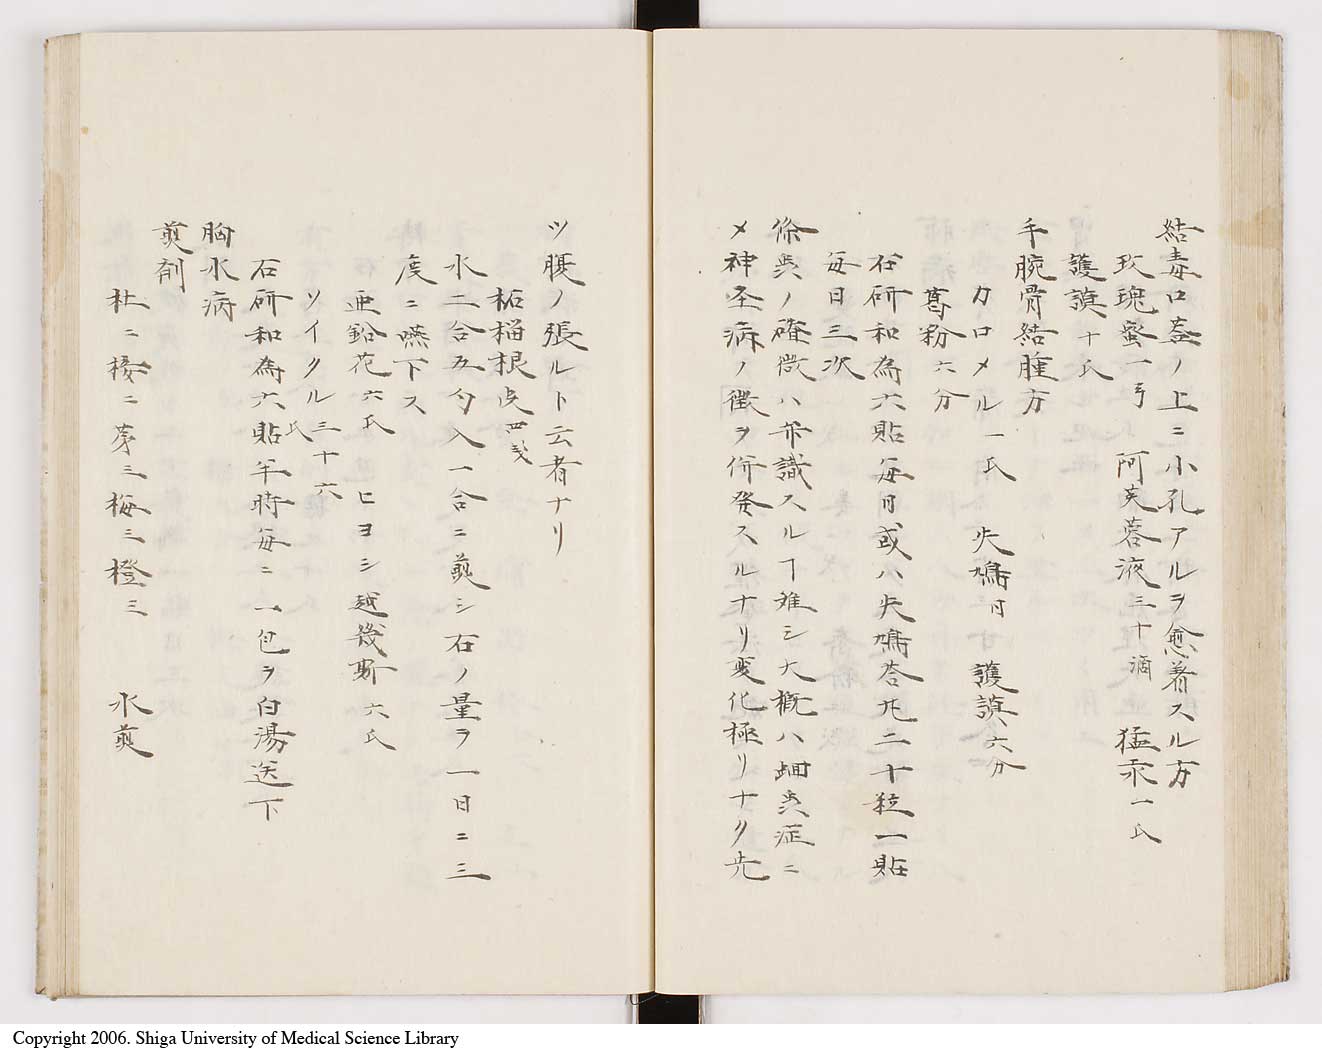 結毒口蓋ノ上ニ小孔アルヲ愈着スル方
玫瑰蜜一弓 阿芙蓉液三十滴 猛汞一氏
護謨十氏
手腕骨結腫方
カロメル一氏 失鳩 護謨六分
葛粉六分
右研和為六貼毎日或ハ失鳩答丸二十粒一貼
毎日三次
條虫ノ確徴ハ弁識スルヿ難シ大概ハ蛔虫症ニ
〆神圣病ノ徴ヲ併発スルナリ変化極リナク先
ツ腹ノ張ルト云者ナリ
柘榴根皮四戔
水二合五勺入一合ニ煎シ右ノ量ヲ一日ニ三
度ニ嚥下ス
亜鉛花六氏 ヒヨシ越幾斯六氏
ソイクル三十六氏
右研和為六貼半時毎ニ一包ヲ白湯送下
胸水病
煎剤
杜ニ 茅三梅三橙三 水煎
Copyright 2006. Shiga University of Medical Science Library